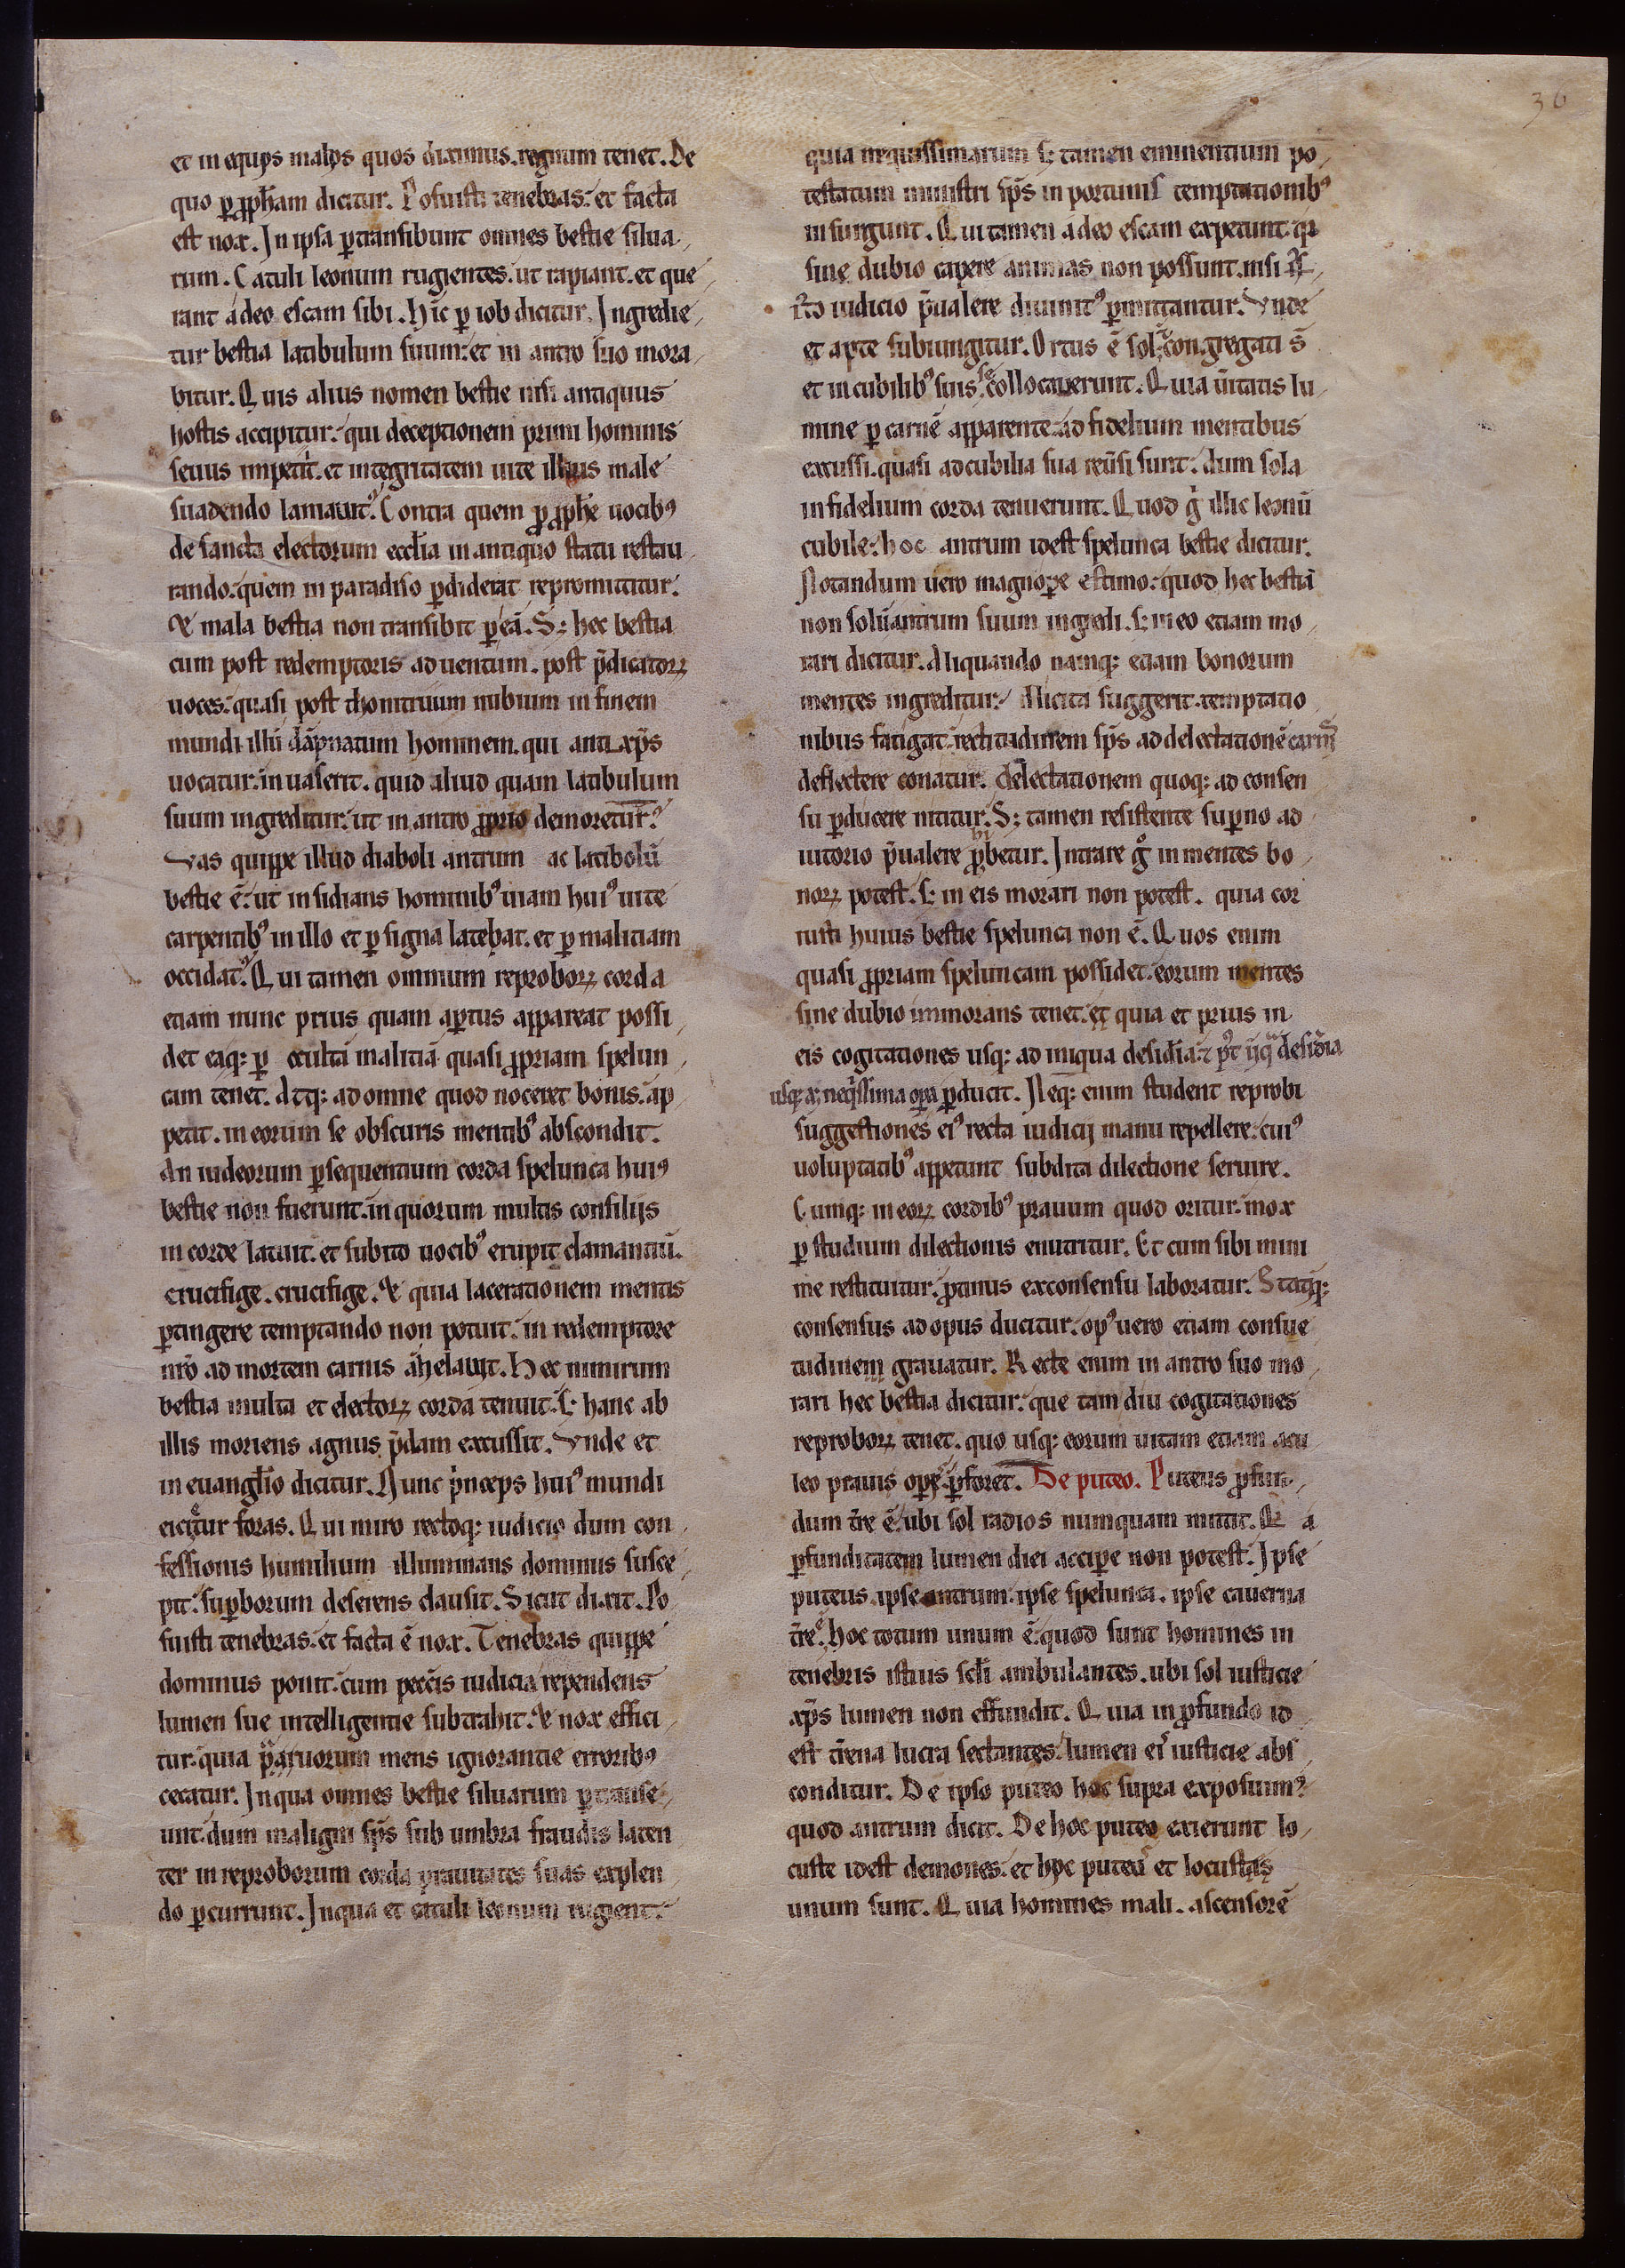 36
et in equis malis quos diximus. regnum tenet. De
quo ꝑ ꝓph̄am dicitur. Posuisti tenebras: et facta
est nox. In ipsa ꝑtransibunt omnes bestie silua
rum. Catuli leonum rugientes. ut rapiant. et que
rant a deo escam sibi. Hīc ꝑ iob dicitur. Ingredie
tur bestia latibulum suum: et in antro suo mora
bitur. Quis alius nomen bestie nisi antiquus
hostis accipitur: qui deceptionem primi hominis
seuus impetiit. et integritatem uite illius male
suadendo laniauit? Contra quem ꝓ ꝓphe uocibꝰ
de sancta electorum eccl̄ia in antiquo statu restau
rando: quem in paradiso ꝑdiderat repromittitur.
& mala bestia non transibit ꝑ eā. S; hec bestia
cum post redemptoris aduentum. post p̄dicatoꝝ
uoces: quasi post thonitruum nubium in finem
mundi illū dāpnatum hominem. qui antixp̄s
uocatur. inuaserit. quid aliud quam latibulum
suum ingreditur: ut in antro ꝓprio demoretur?
Vas quippe illud diaboli antrum ac latibolū
bestie ē: ut insidians hominibꝰ uiam huiꝰ uite
carpentibꝰ in illo et ꝑ signa lateb̶at. et ꝑ malitiam
occidat. Qui tamen omnium reproboꝝ corda
etiam nunc prius quam aꝑtus appareat possi
det eaq; ꝑ ocultā malitiā quasi ꝓpriam spelun
cam tenet. Atq; ad omne quod noceret bonis. ap
petit. in eorum se obscuris mentibꝰ abscondit.
An iudeorum ꝑsequentium corda spelunca huiꝰ
bestie non fuerunt. in quorum multis consiliis
in corde latuit. et subito uocibꝰ erupit clamantiū.
crucifige. crucifige. & quia lacerationem mentis
ꝑtingere temptando non potuit. in redemptore
nr̄o ad mortem carnis ahelauit. Hec nimirum
bestia multa et electoꝝ corda tenuit. s; hanc ab
illis moriens agnus p̄dam excussit. Vnde et
in euangl̄io dicitur. Nunc p̄nceps huiꝰ mundi
eicietur foras. Qui miro rectoq; iudicio dum con
fessionis humilium illuminans dominus susce
pit: suꝑborum deserens clausit. Sicut dixit. Po
suisti tenebras. et facta ē nox. Tenebras quippe
dominus ponit. cum pecc̄is iudicia rependens
lumen sue intelligentie subtrahit. & nox effici
tur. quia prauorum mens ignorantie erroribꝰ
cecatur. In qua omnes bestie siluarum ꝑtranse
unt. dum maligni sp̄s sub umbra fraudis laten
ter in reproborum corda prauitates suas explen
do ꝑcurrunt. In qua et catuli leonum rugient.
quia nequissimarum s; tamen eminentium po
testatum ministri sp̄s in portunis temptationibꝰ
insurgunt. Qui tamen a deo escam expetunt. qi
sine dubio capere animas non possunt. nisi
iudicio p̄ualere diuinitꝰ ꝑmittantur. Vnde
et apte subiungitur. Ortus ē sol. et congregati s̄
et in cubilibꝰ suis se collocauerunt. Quia ūitatis lu
mine ꝑ carnē apparente. ad fidelium mentibus
excussi. quasi ad cubilia sua reūsi sunt: dum sola
infidelium corda tenuerunt. Quod ġ illic leonū
cubile: hoc antrum idest spelunca bestie dicitur.
Notandum uero magnope estimo: quod hec bestiā
non solū antrum suum ingredi. s; in eo etiam mo
rari dicitur. Aliquando namq; etiam bonorum
mentes ingreditur. illicita suggerit. temptatio
nibus fatigat. rectitudinem sp̄s ad delectationē carnis
deflectere conatur. delectationem quoq; ad consen
su ꝑducere nititur. S; tamen resistente suꝑno ad
iutorio p̄ualere ꝓhibetur. Intrare gͦ in mentes bo
noꝝ potest. s; in eis morari non potest. quia cor
iusti huius bestie spelunca non ē. Quos enim
quasi ꝓpriam speluncam possidet. eorum mentes
sine dubio inmorans tenet. et quia et prius in
eis cogitationes usq; ad iniqua desid̄ia. desid̄ia
usq; ad neqissima oꝑa ꝑducit. Neq; enim student reprobi
suggestiones eiꝰ recta iudicii manu repellere. cuiꝰ
uoluptatibꝰ appetunt subdita dilectione seruire.
Cumq; in eoꝝ cordibꝰ prauum quod oritur. mox
ꝑ studium dilectionis enutritur. Et cum sibi mini
me restituitur. ꝓtinus ex consensu laboratur. Statq;
consensus ad opus ducitur. opꝰ uero etiam consue
tudinem grauatur. Recte enim in antro suo mo
rari hec bestia dicitur. que tam diu cogitationes
reproboꝝ tenet. quo usq; eorum uitam etiam acu
leo prauis oꝑe ꝑforet. De puteo. Puteus ꝓfun
dum t̄re ē. ubi sol radios numquam mittit. Q a
ꝓfunditatem lumen diei accipe non potest. Ipse
puteus. ipse antrum. ipse spelunca. ipse cauerna
t̄re. hoc totum unum ē. quod sunt homines in
tenebris istius scl̄i ambulantes. ubi sol iusticie
xp̄s lumen non effundit. Quia in ꝓfundo id
est t̄rena lucra sectantes. lumen eiꝰ iusticie abs
conditur. De ipso puteo hoc supra exposuimꝰ
quod antrum dicit. De hoc puteo exierunt lo
custe idest demones. et hoc puteū et locustas
unum sunt. Quia homines mali. ascensorē